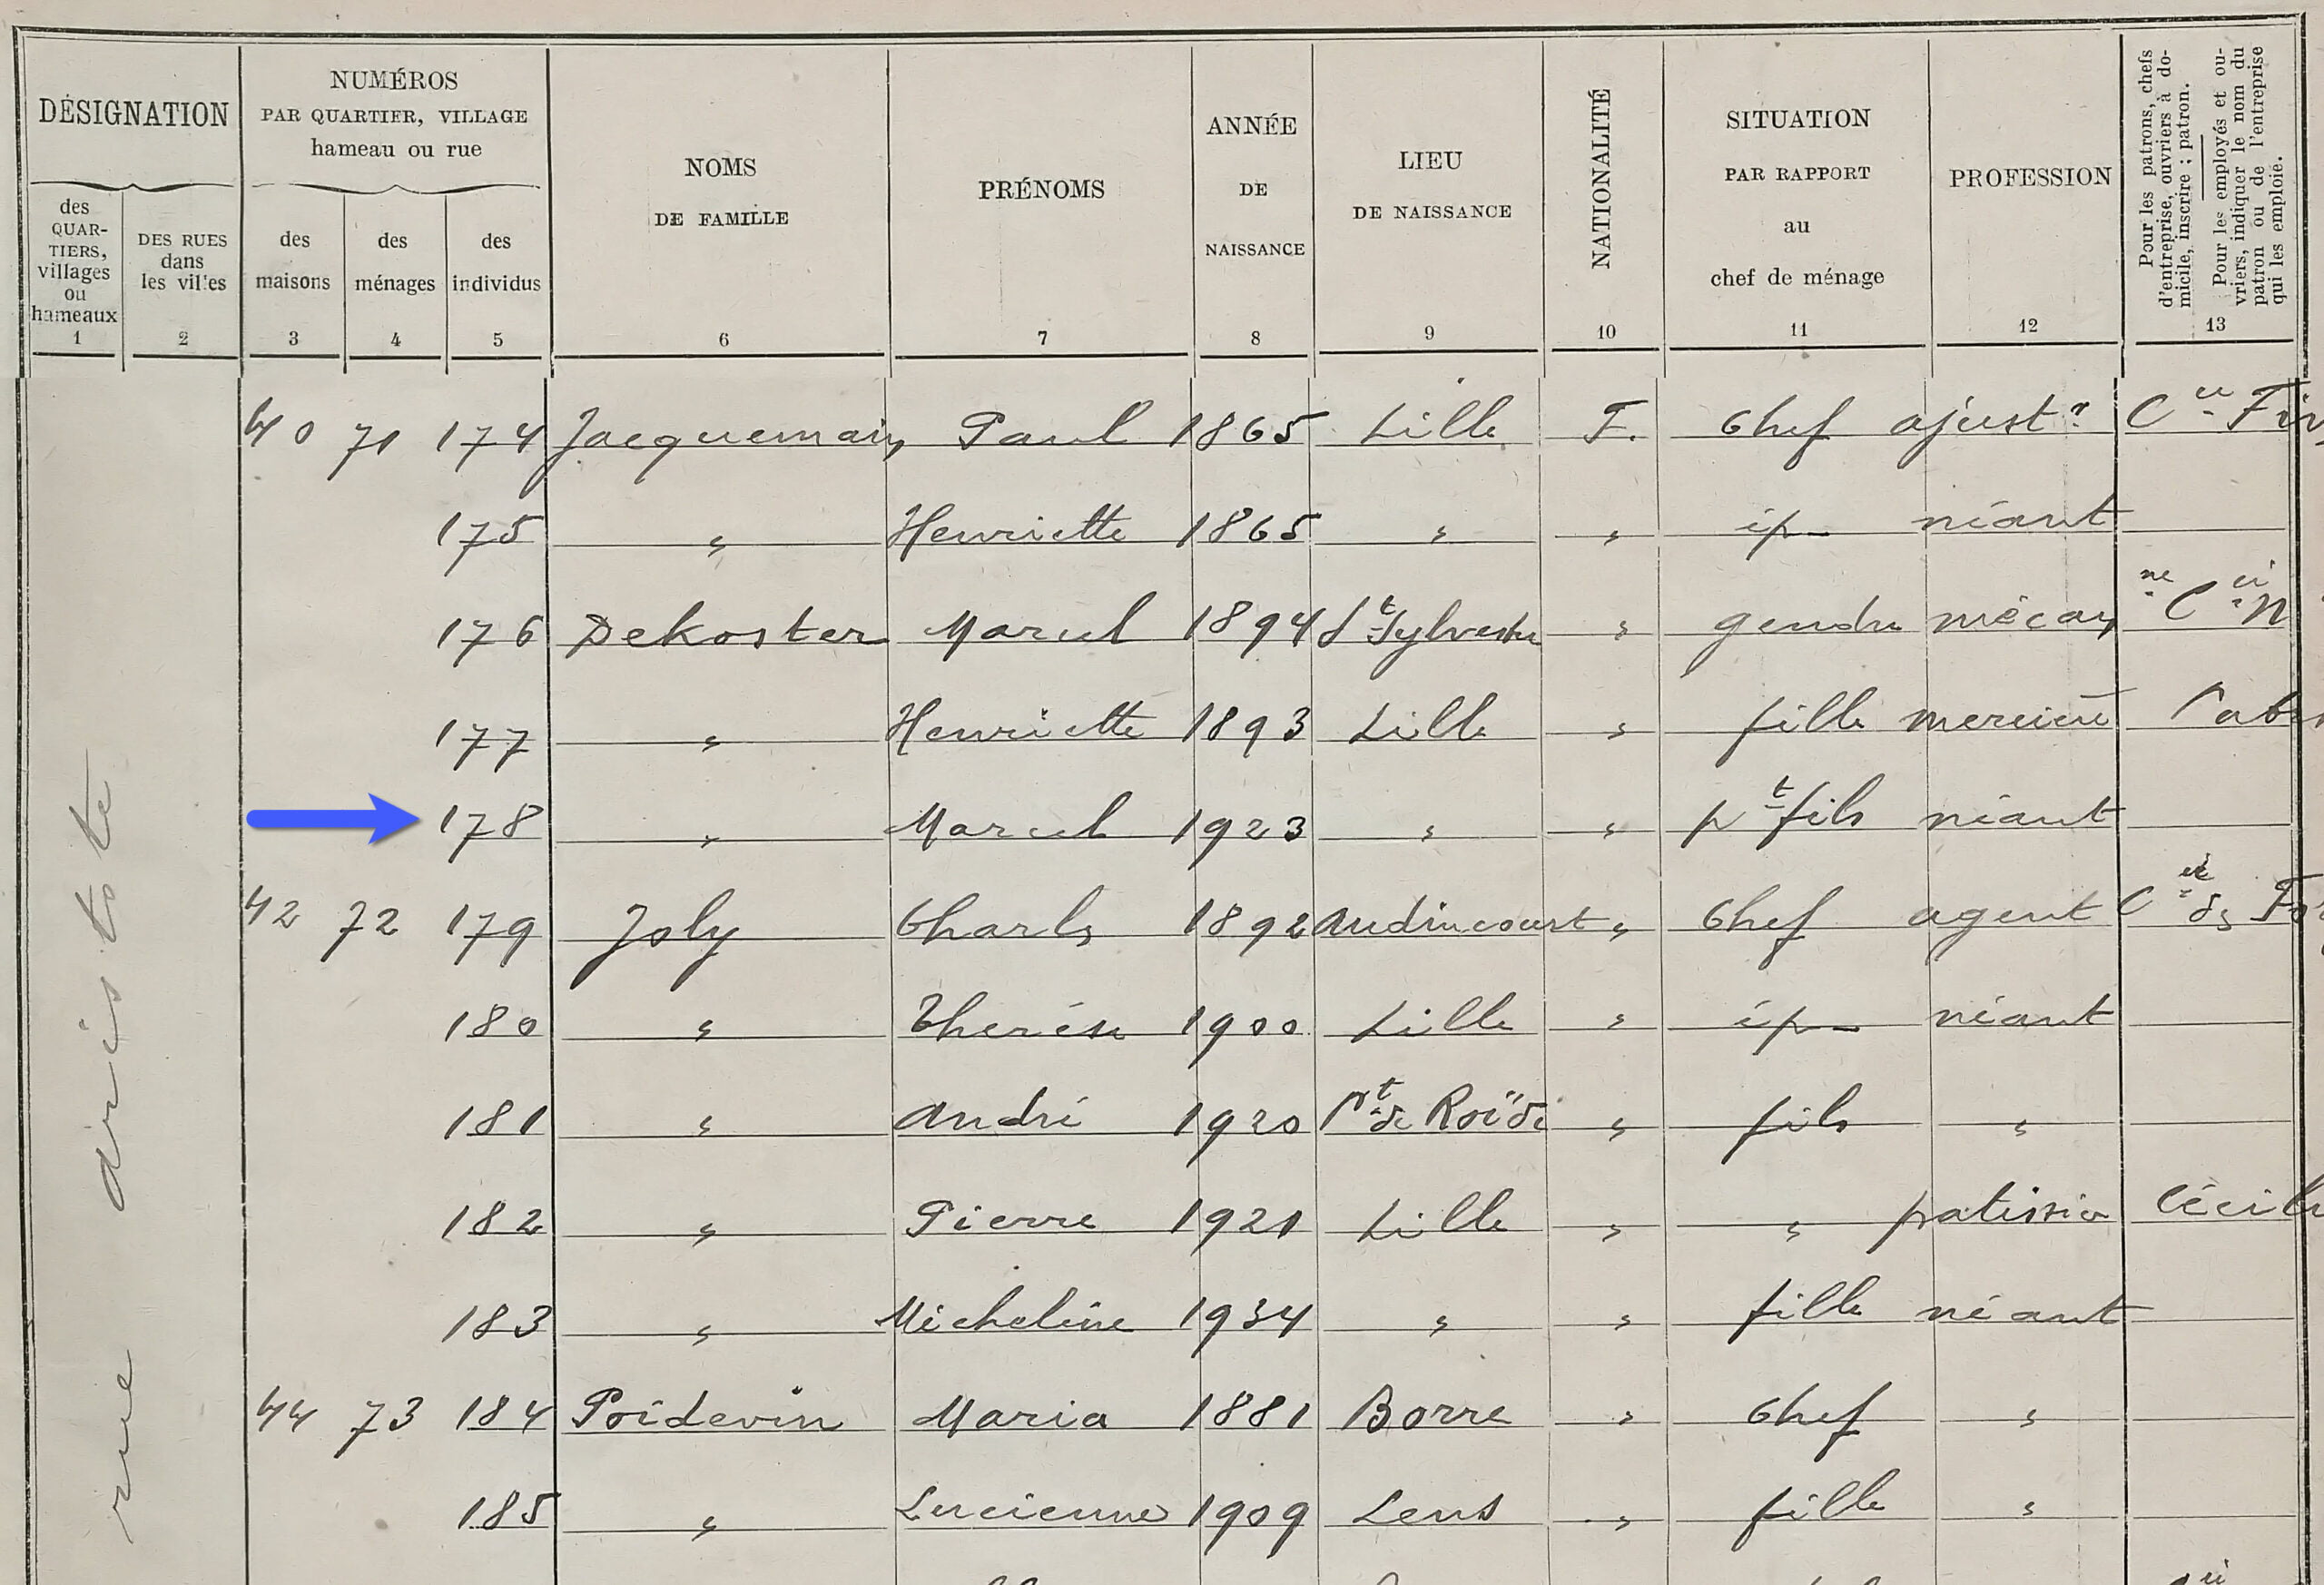 DÉSIGNATION
des QUARTIERS, villages ou hameaux
1
DES RUES dans les villes
2
NUMÉROS
PAR QUARTIER, VILLAGE
hameau ou rue
des maisons
3
des ménages
4
des individus
5
NOMS
DE FAMILLE
6
PRÉNOMS
7
ANNÉE
DE
NAISSANCE
8
LIEU
DE NAISSANCE
9
NATIONALITÉ
10
SITUATION
PAR RAPPORT
au
chef de ménage
11
PROFESSION
12
Pour les patrons, chefs
d'entreprise, ouvriers à do-
micile, inscrire : patron.
Pour les employés et ou-
vriers, indiquer le nom du
patron ou de l'entreprise
qui les emploie.
13
rue aristote
40 71 174 Jacquemain Paul 1865 Lille F. Chef ajustr Cie
175 " Henriette 1865 " " ép néant
176 Dekoster Marcel 1894 St Sylvestre " gendre mécan ne Cie N
177 " Henriette 1893 Lille " fille mercière
178 " Marcel 1923 " " pt fils néant
42 72 179 Joly Charles 1892 Audincourt " Chef agent Cie des
180 " Thérèse 1900 Lille " ép néant
181 " André 1920 Pt de Roïde " fils "
182 " Pierre 1921 Lille " " patissier
183 " Micheline 1934 " " fille néant
44 73 184 Poidevin Maria 1881 Borre " Chef "
185 " Lucienne 1909 Lens " fille "